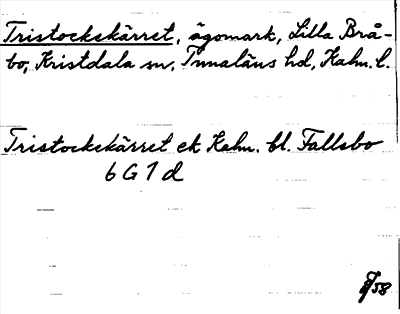 Tristockskärret, ägomark, Lilla Brå-
bo, Kristdala sn, Tunaläns hd, Kalm. l.
Tristockskärret ek Kalm. bl. Fallsbo
6 G 1 d
58